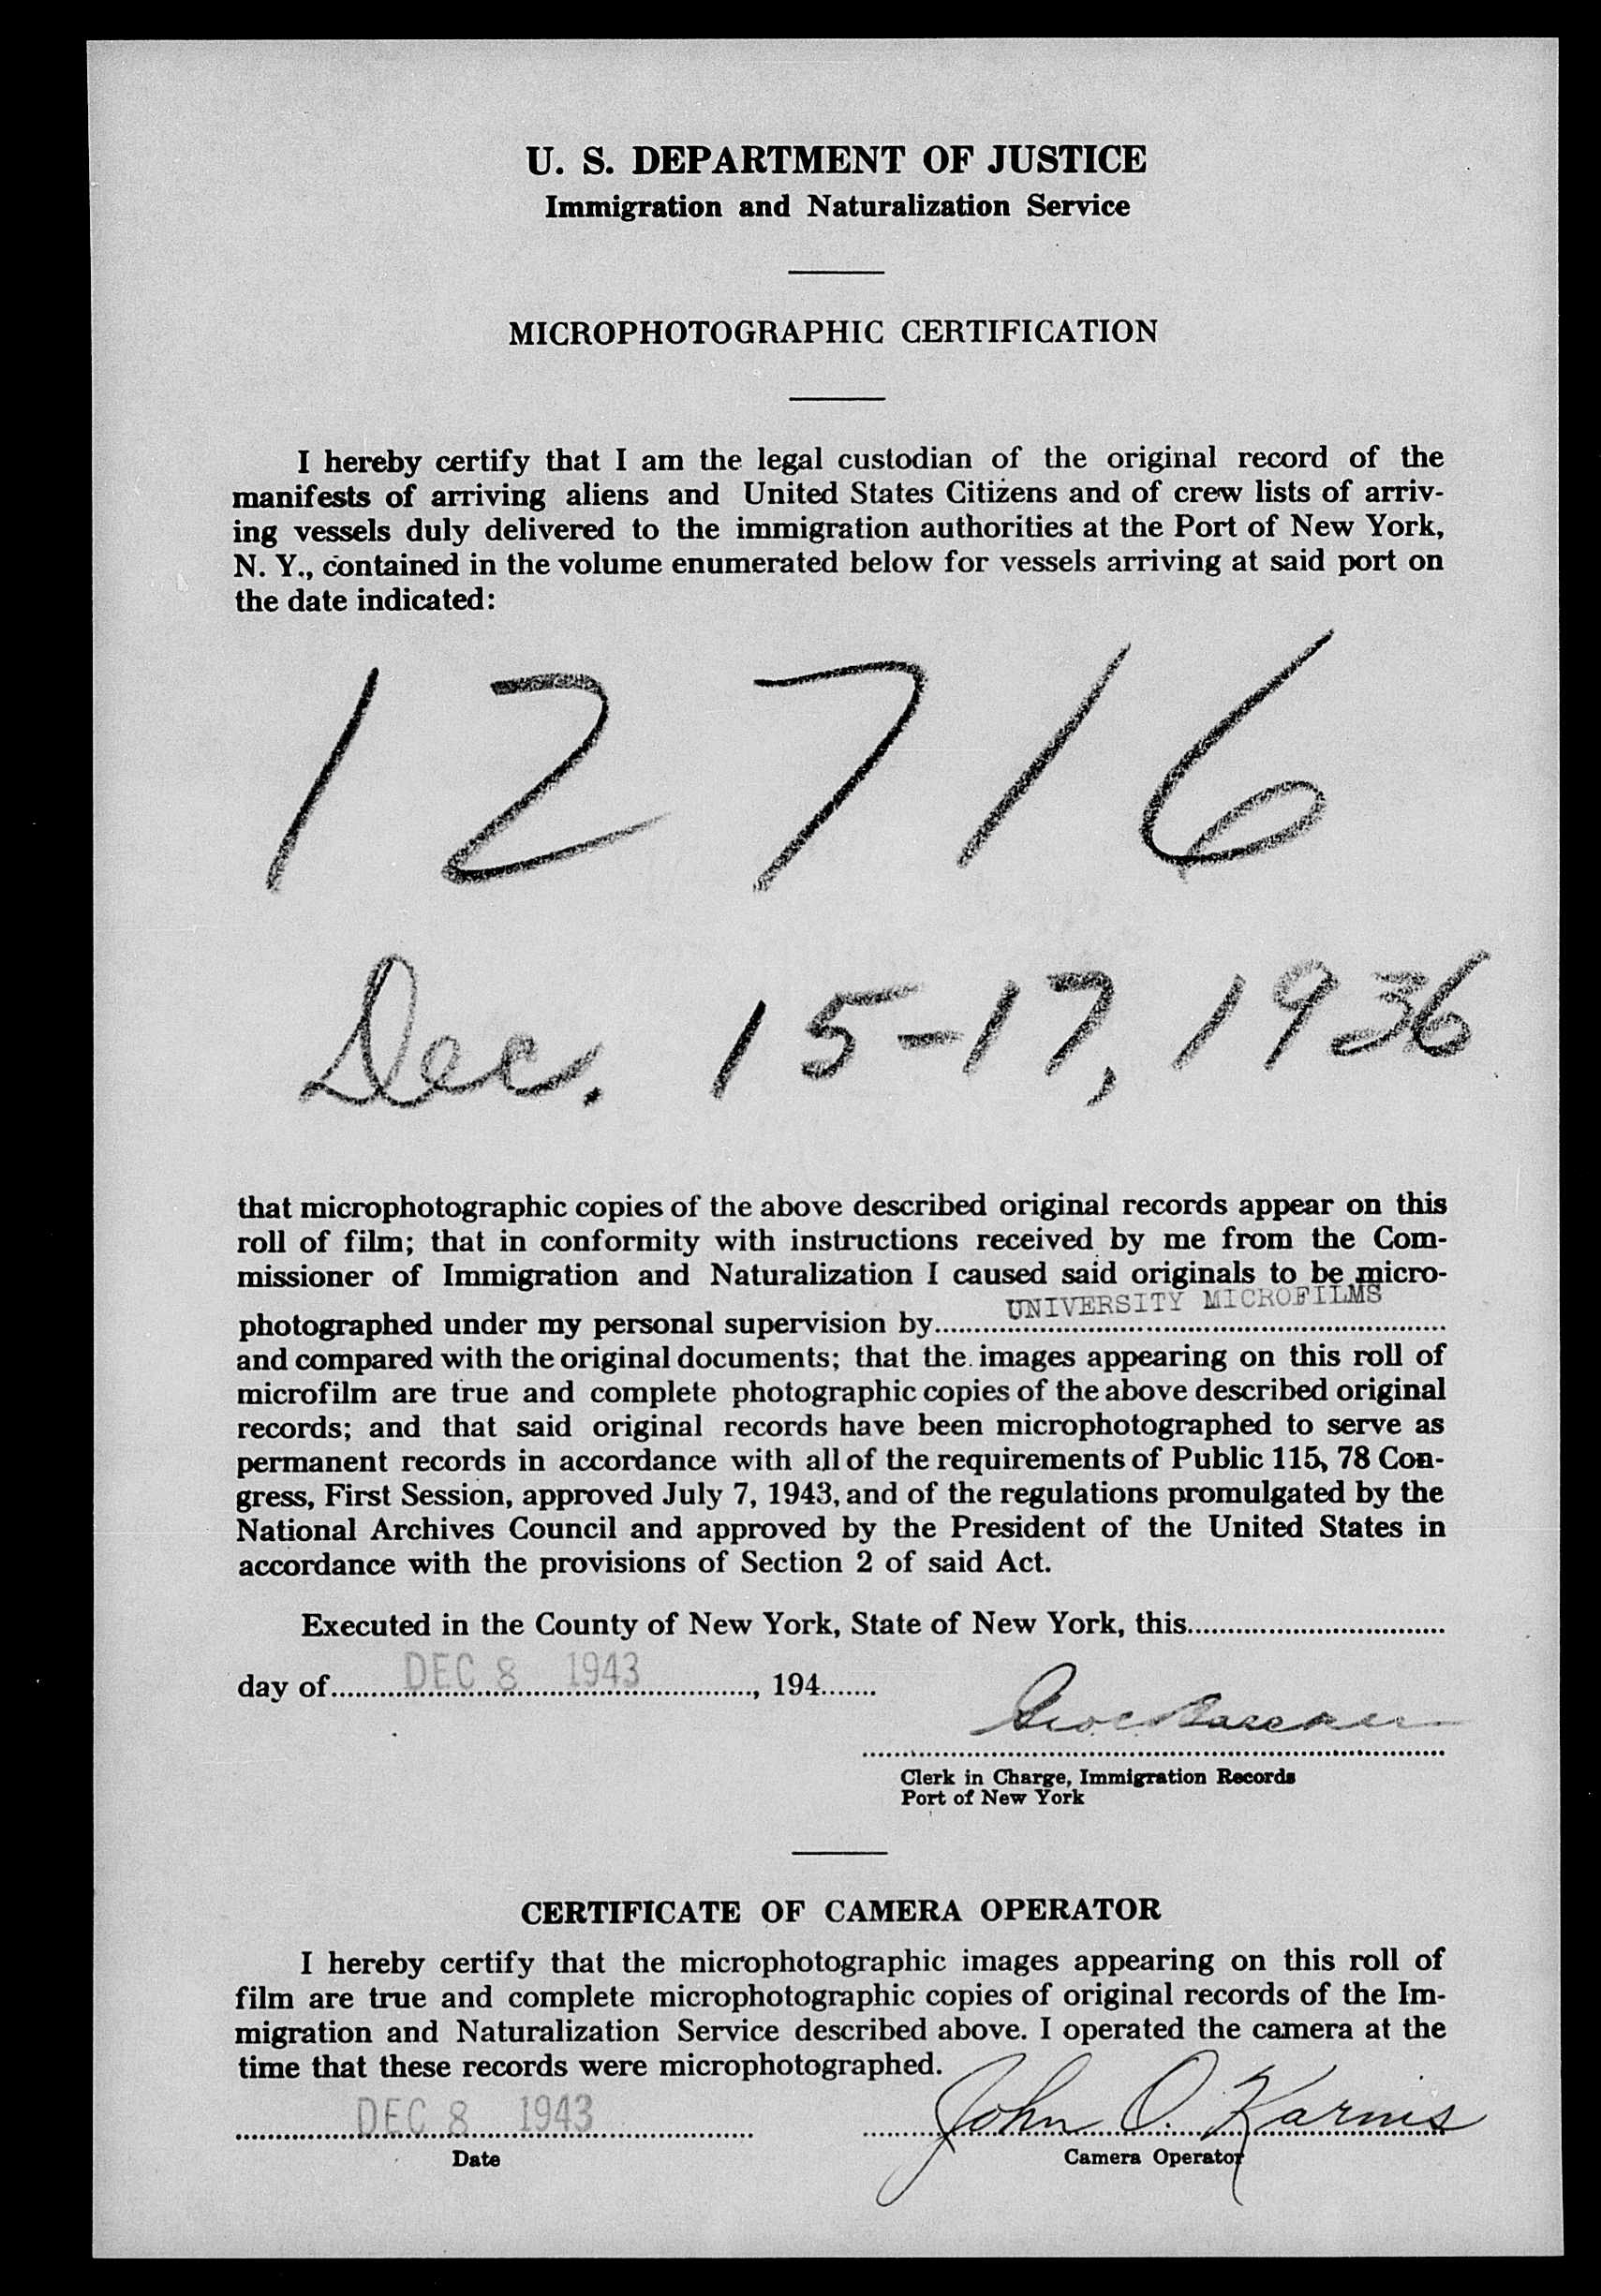 U. S. DEPARTMENT OF JUSTICE
Immigration and Naturalization Service
MICROPHOTOGRAPHIC CERTIFICATION
I hereby certify that I am the legal custodian of the original record of the
manifests of arriving aliens and United States Citizens and of crew lists of arriv-
ing vessels duly delivered to the immigration authorities at the Port of New York,
N. Y., contained in the volume enumerated below for vessels arriving at said port on
the date indicated:
12716
Dec. 15-17, 1936
that microphotographic copies of the above described original records appear on this
roll of film; that in conformity with instructions received by me from the Com-
missioner of Immigration and Naturalization I caused said originals to be micro-
photographed under my personal supervision by UNIVERSITY MICROFILMS
and compared with the original documents; that the images appearing on this roll of
microfilm are true and complete photographic copies of the above described original
records; and that said original records have been microphotographed to serve as
permanent records in accordance with all of the requirements of Public 115, 78 Con-
gress, First Session, approved July 7, 1943, and of the regulations promulgated by the
National Archives Council and approved by the President of the United States in
accordance with the provisions of Section 2 of said Act.
Executed in the County of New York, State of New York, this
day of DEC 8 1943, 194
Clerk in Charge, Immigration Records
Port of New York
CERTIFICATE OF CAMERA OPERATOR
I hereby certify that the microphotographic images appearing on this roll of
film are true and complete microphotographic copies of original records of the Im-
migration and Naturalization Service described above. I operated the camera at the
time that these records were microphotographed.
DEC 8 1943 John O. Karnis
Date Camera Operator